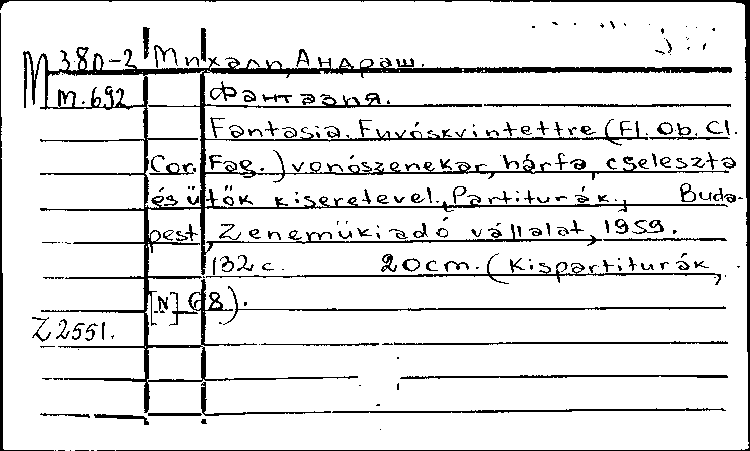 М 380-2 Михали, Андраш.
м. 692 Фантазия.
Fantasia. Fuvóskvintettre (Fl. Ob. Cl.
Cor. Fag.) vonószenekar, hárfa, cseleszta
és ütők kiseretevel. Partiturák. Buda-
pest, Zeneműkiadó vállalat, 1959.
132 c. 20cm. (Kispartiturák,
[N] 68).
Z 2551.